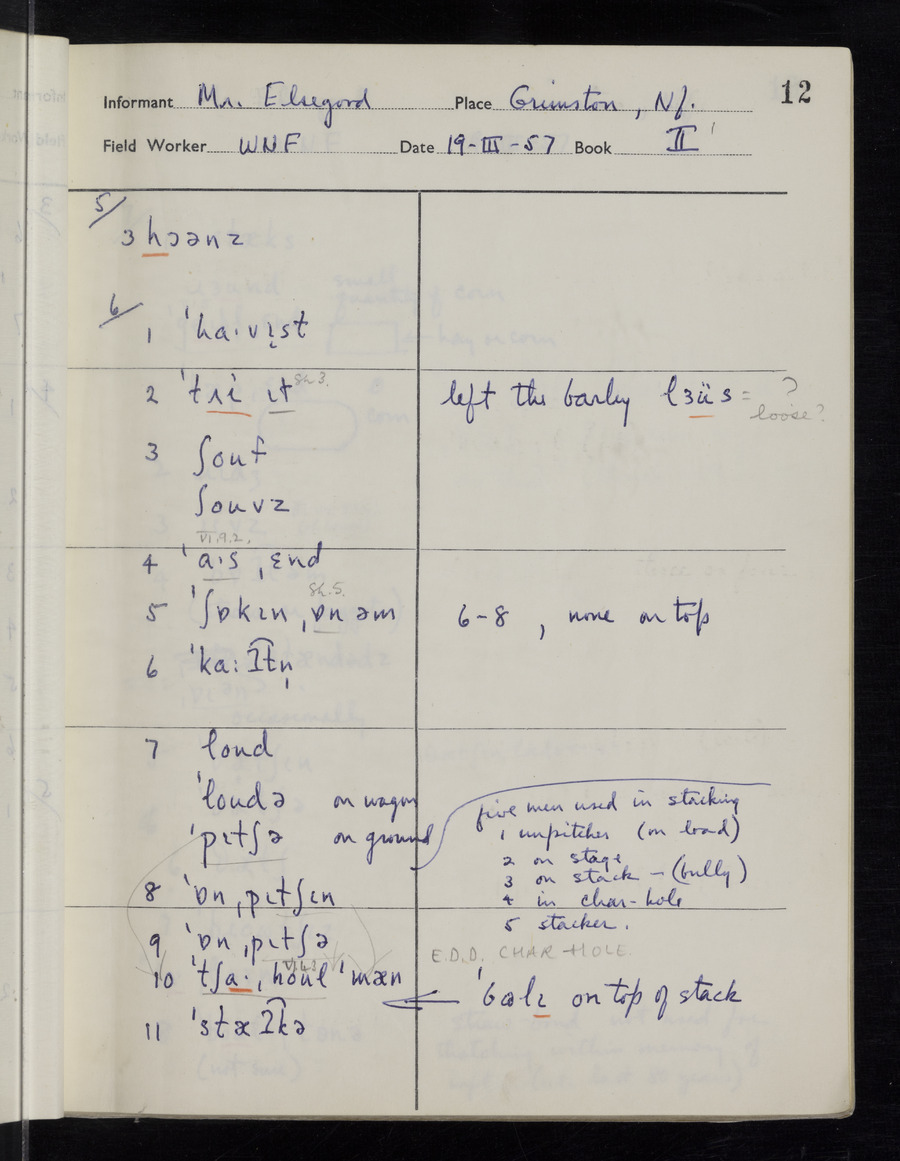 12
Informant Mr. Elsegood Place Grimston, Nf.
Field Worker WNF Date 19-III-57 Book II
5/
3 hɔənz
6/
1 ˈhaːvɪ̣st
2 ˈtrʌi ɪt Sh 3. left the barley lɜüs = ?
loose?
3 ʃouf
ʃouvz
VI.9.2.
4 ˈaːs ˌɛnd
Sh.5.
5 ˈʃɒkɪn ˌɒn əm 6-8, none on top
6 ˈkaːʔt͡n̩
7 loud
ˈloudə on wagon
ˈpɪtʃə on ground
five men used in stacking
1 unpitcher (on load)
2 on stage
3 on stack - (bully)
4 in char-hole
5 stacker.
8 ˈɒn ˌpɪtʃɪn
9 ˈɒn ˌpɪtʃə
E.D.D. CHAR-HOLE.
10 ˈtʃaː ˌhoul ˈmæn
ˈbɷlɪ on top of stack
11 ˈstæʔk͡ə